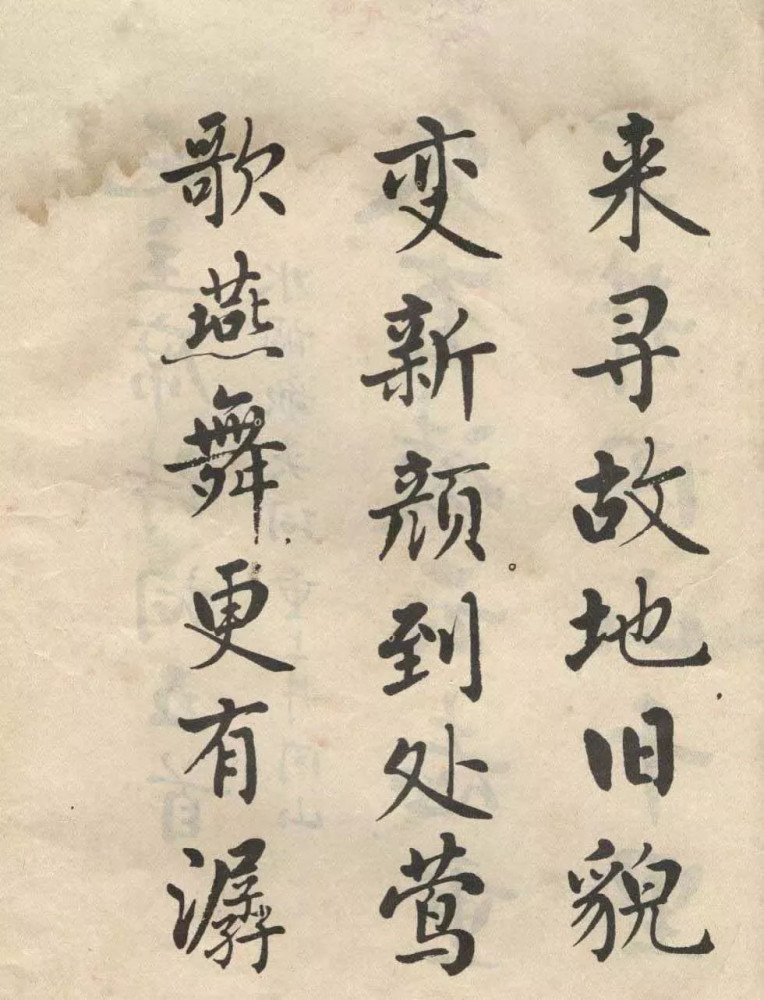 来寻故地旧貌
变新颜。到处莺
歌燕舞更有潺